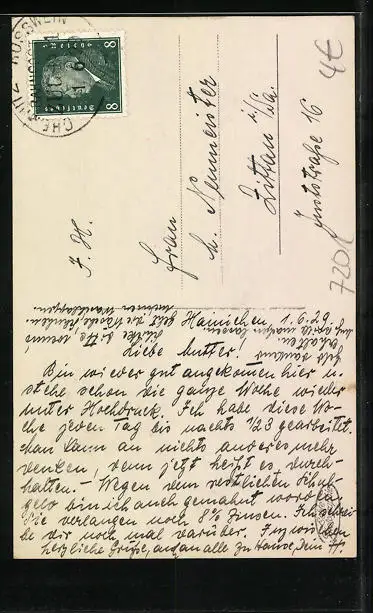 CHEMNITZ ROSSWEIN
BAHNPOST
8 Deutsches Reich 8
F. H.
Frau
M. Neumeister
Zittau i/Sa.
Juststraße 16
4€
7201
Hainichen, 1.6.29.
Liebe Mutter!
Bin wieder gut angekommen hier u.
stehe schon die ganze Woche wieder
unter Hochdruck. Ich habe diese Wo-
che jeden Tag bis nachts 1/23 gearbeitet.
Man kann an nichts anderes mehr
denken, denn jetzt heißt es durch-
halten. - Wegen dem restlichen Schul-
geld bin ich auch gemahnt worden.
Sie verlangen noch 8% Zinsen. Ich schrei-
be dir noch mal darüber. Inzwischen
herzliche Grüße, auch an alle zu Hause, Dein H.
Geld dankend
erhalten.